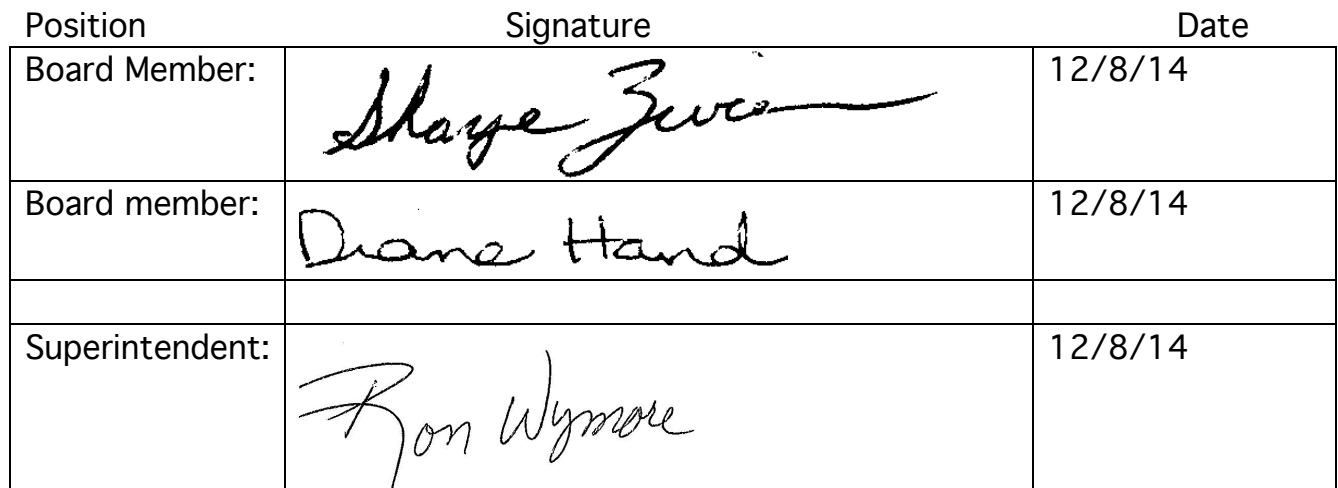 Position Signature Date
Board Member: Sharye 12/8/14
Board member: Diane Hand 12/8/14
Superintendent: Ron Wymore 12/8/14